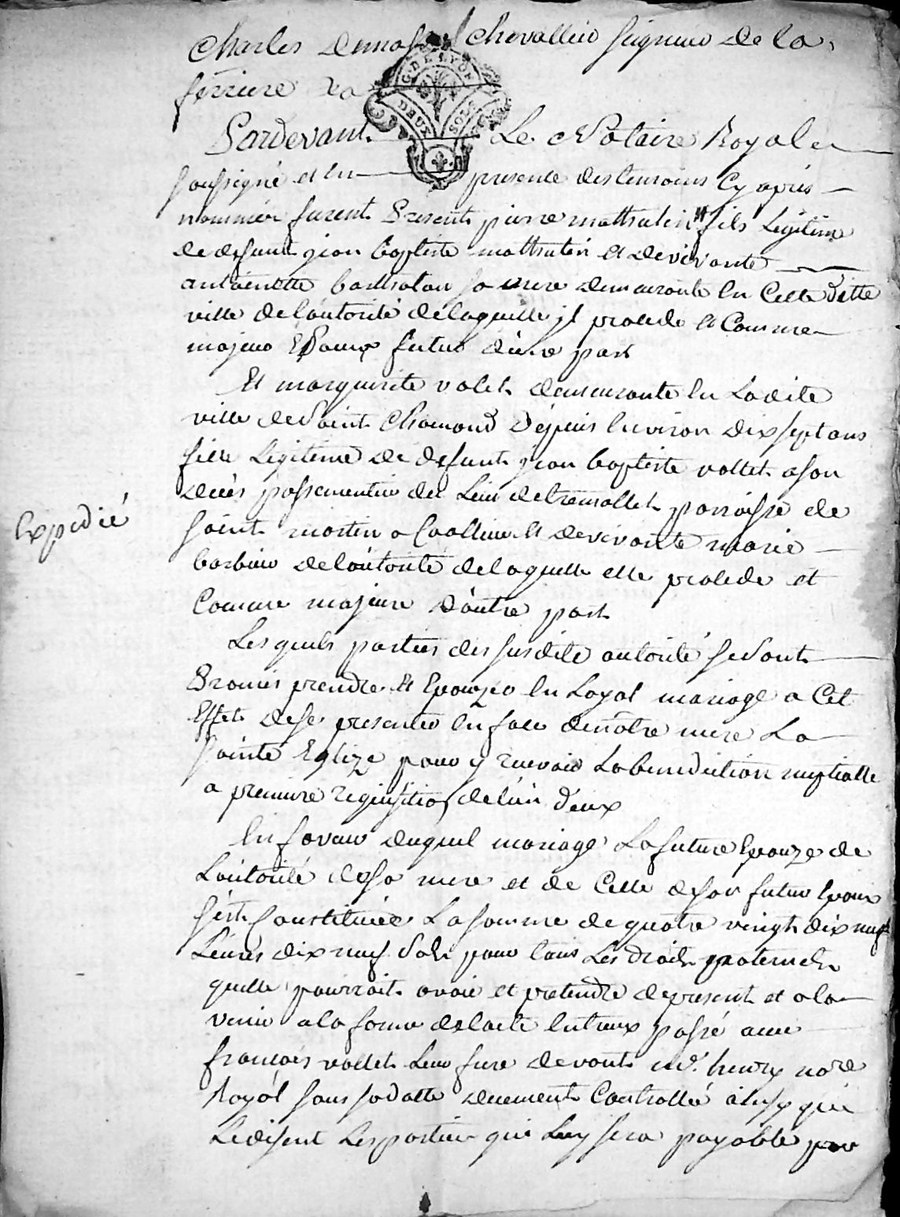 Charles Chevallier seigneur de la
ferriere
G. DE LYON
DEUX SOLS
Pardevant Le Notaire Royal
soussigné et en presence des temoins Cy après
nommés furent Present pierre mathulin fils Legitime
de defunt jean baptiste mathulin et de vivante
antoinette sa mere demeurante En Cette ditte
ville de lautorité de laquelle jl procede et Comme
majeur Epoux futur d'une part
Et marguerite valet demeurante En Ladite
ville de Saint Chamond depuis Environ dix sept ans
fille Legitime de defunt jean baptiste vallet a son
deces passementier du Lieu de paroisse de
saint martin a Coallieu et de vivante marie
Expedié
barbier de lautorité de laquelle elle procede et
Comme majeure d'autre part
Lesquels parties des susdite autorité se sont
Promis prendre et Epouzer En Loyal mariage a Cet
Effet de se presenter En face de notre mere La
sainte Eglize pour y recevoir La benediction nuptialle
a premiere requisition de lun d'eux
En faveur duquel mariage La future Epouze de
Lautorité de sa mere et de Celle de son futur Epoux
s'est Constituée La somme de quatre vingt dix neuf
Livres dix neuf Sols pour tous Les droits paternels
quelle pourrait avoir et pretendre de present et a la
venir a la forme de lacte Entreux passé avec
françois vallet Leur frere devant me. henry nore
Royal sous sa datte duement Controllé ainsy que
Le disent Les parties qui Luy sera payable par